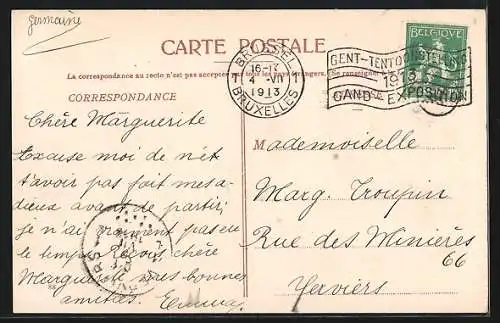 Germaine
CARTE POSTALE
La correspondance au recto n'est pas acceptée par tous les pays étrangers. (Se renseigner
CORRESPONDANCE
BRUSSEL
16-17
1 4 -VII 1
1913
BRUXELLES
BELGIQUE
GENT-TENTOONSTELLING
1913
GAND-EXPOSITION
Chère Marguerite
Excuse moi de n'et
t'avoir pas fait mes a-
dieux avant de partir;
je n'ai vraiment pas eu
le temps. Reçois, chère
Marguerite mes bonnes
amitiés. Emma.
Mademoiselle
Marg. Troupin
Rue des Minières
66
Verviers